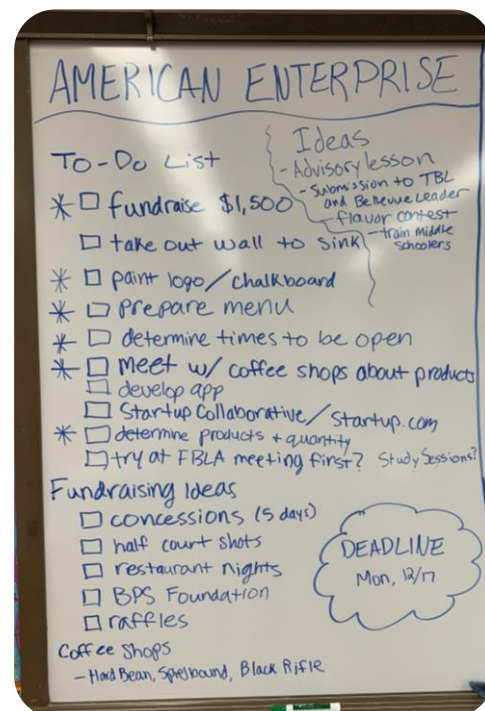 AMERICAN ENTERPRISE
To-Do List
* □ fundraise $1,500
□ take out wall to sink
* □ paint logo/chalkboard
* □ prepare menu
* □ determine times to be open
* □ meet w/ coffee shops about products
□ develop app
□ Startup Collaborative/startup.com
* □ determine products + quantity
□ try at FBLA meeting first? Study Sessions?
Ideas
- Advisory lesson
- Submission to TBL
and Bellevue Leader
- flavor contest
- train middle
schoolers
Fundraising Ideas
□ concessions (5 days)
□ half court shots
□ restaurant nights
□ BPS Foundation
□ raffles
DEADLINE
Mon, 12/17
Coffee Shops
- Hard Bean, Spielbound, Black Rifle